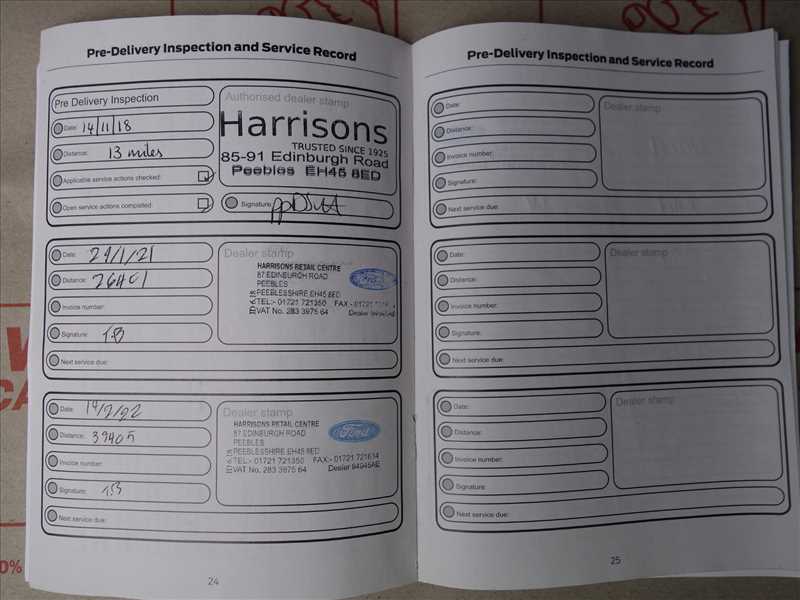 Pre-Delivery Inspection and Service Record
Pre Delivery Inspection
Date: 14/11/18
Distance: 13 miles
Applicable service actions checked:
Open service actions completed:
Authorised dealer stamp
Harrisons
TRUSTED SINCE 1925
85-91 Edinburgh Road
Peebles EH45 8ED
Signature:
Date: 29/1/21
Distance: 26401
Invoice number:
Signature: T.B
Next service due:
Dealer stamp
HARRISONS RETAIL CENTRE
87 EDINBURGH ROAD
PEEBLES
PEEBLESSHIRE EH45 8ED
TEL:- 01721 721350 FAX:- 01721
VAT No. 283 3975 64 Dealer
Ford
Date: 14/2/22
Distance: 39405
Invoice number:
Signature: T.B
Next service due:
Dealer stamp
HARRISONS RETAIL CENTRE
87 EDINBURGH ROAD
PEEBLES
PEEBLESSHIRE EH45 8ED
TEL:- 01721 721350 FAX:- 01721 721614
VAT No. 283 3975 64 Dealer 94945AE
Ford
24
Pre-Delivery Inspection and Service Record
Date:
Distance:
Invoice number:
Signature:
Next service due:
Dealer stamp
Date:
Distance:
Invoice number:
Signature:
Next service due:
Dealer stamp
Date:
Distance:
Invoice number:
Signature:
Next service due:
Dealer stamp
25